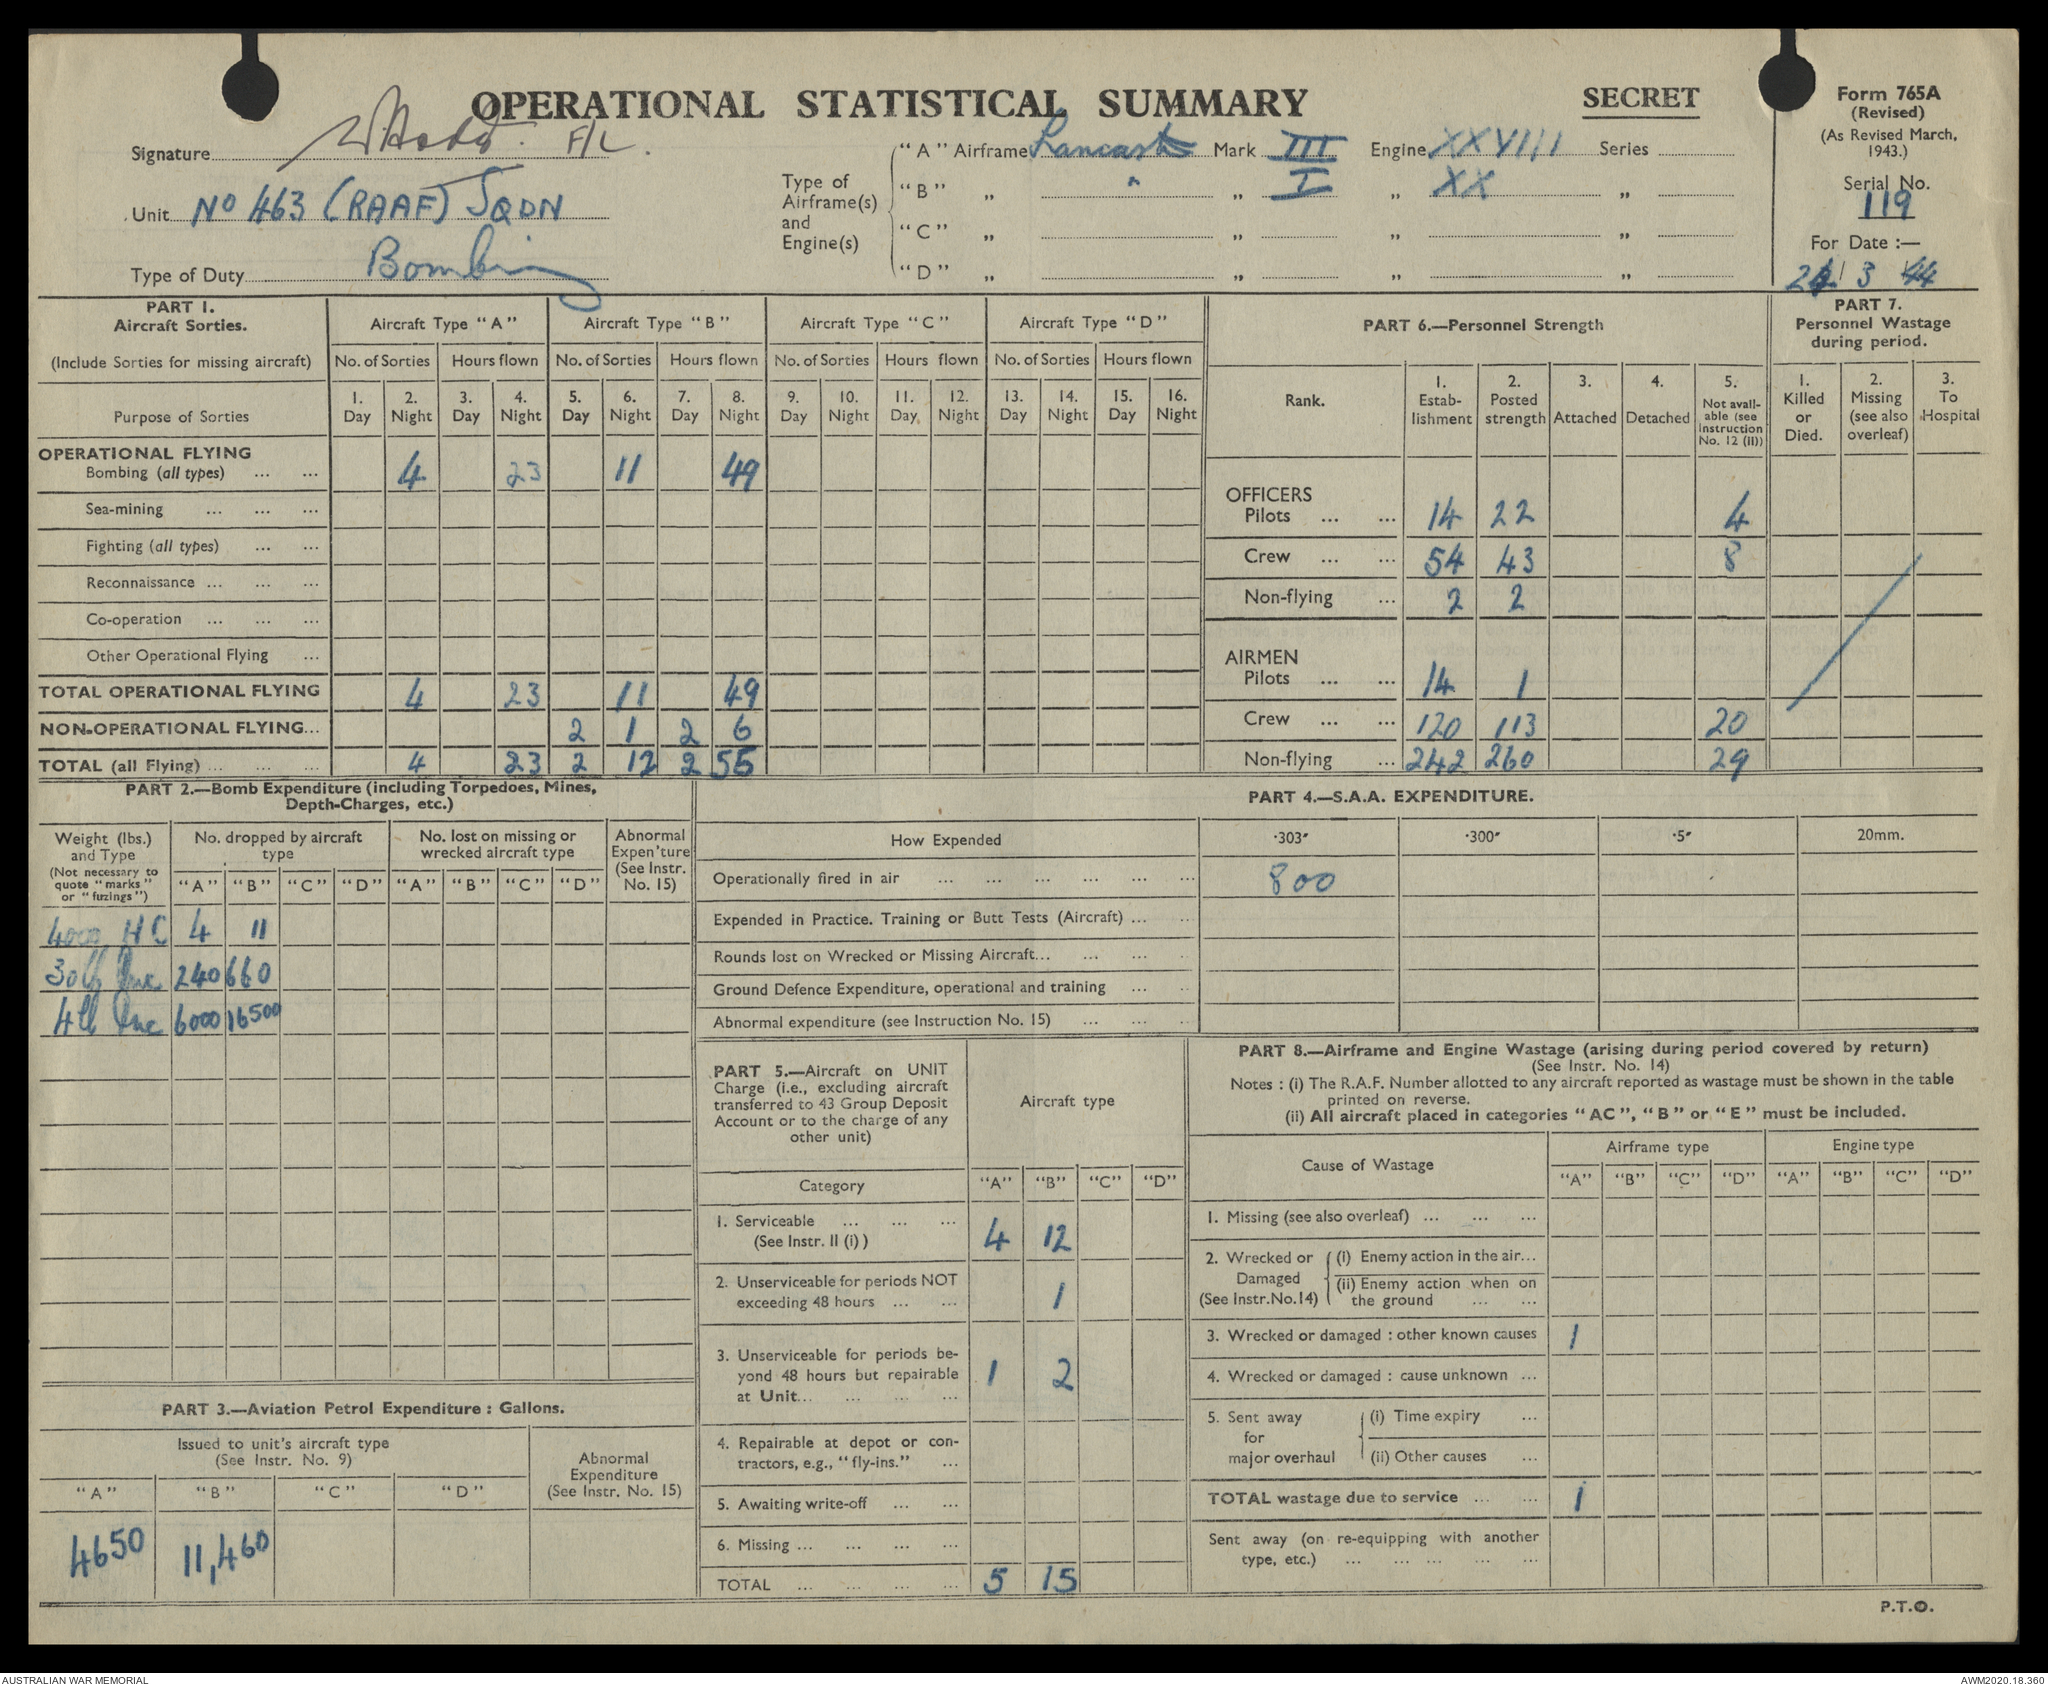 OPERATIONAL STATISTICAL SUMMARY
SECRET
Form 765A
(Revised)
(As Revised March,
1943.)
Signature F/L.
Unit No 463 (RAAF) SQDN
Type of Duty Bombing
Type of
Airframe(s)
and
Engine(s)
"A" Airframe Lancaster Mark III Engine XXVIII Series
"B" „ " „ I „ XX „
"C" „ „ „ „
"D" „ „ „ „
Serial No.
119
For Date :—
3 44
PART 1.
Aircraft Sorties.
(Include Sorties for missing aircraft)
Purpose of Sorties
Aircraft Type "A" Aircraft Type "B" Aircraft Type "C" Aircraft Type "D"
No. of Sorties Hours flown No. of Sorties Hours flown No. of Sorties Hours flown No. of Sorties Hours flown
1. 2. 3. 4. 5. 6. 7. 8. 9. 10. 11. 12. 13. 14. 15. 16.
Day Night Day Night Day Night Day Night Day Night Day Night Day Night Day Night
OPERATIONAL FLYING
Bombing (all types) ... ... 4 23 11 49
Sea-mining ... ... ...
Fighting (all types) ... ...
Reconnaissance ... ... ...
Co-operation ... ... ...
Other Operational Flying ...
TOTAL OPERATIONAL FLYING 4 23 11 49
NON-OPERATIONAL FLYING... 2 1 2 6
TOTAL (all Flying) ... ... ... 4 23 2 12 2 55
PART 6.—Personnel Strength
Rank.
1. Estab-lishment
2. Posted strength
3. Attached
4. Detached
5. Not avail-able (see Instruction No. 12 (II))
OFFICERS
Pilots ... ... 14 22 4
Crew ... ... 54 43 8
Non-flying ... 2 2
AIRMEN
Pilots ... ... 14 1
Crew ... ... 120 113 20
Non-flying ... 242 260 29
PART 7.
Personnel Wastage
during period.
1. Killed or Died.
2. Missing (see also overleaf)
3. To Hospital
PART 2.—Bomb Expenditure (including Torpedoes, Mines,
Depth-Charges, etc.)
Weight (lbs.)
and Type
(Not necessary to
quote "marks"
or "fuzings")
No. dropped by aircraft
type
No. lost on missing or
wrecked aircraft type
Abnormal
Expen'ture
(See Instr.
No. 15)
"A" "B" "C" "D" "A" "B" "C" "D"
4000 HC 4 11
30lb Inc 240 660
4lb Inc 6000 16500
PART 3.—Aviation Petrol Expenditure : Gallons.
Issued to unit's aircraft type
(See Instr. No. 9)
Abnormal
Expenditure
(See Instr. No. 15)
"A" "B" "C" "D"
4650 11,460
PART 4.—S.A.A. EXPENDITURE.
How Expended ·303″ ·300″ ·5″ 20mm.
Operationally fired in air ... ... ... ... ... ... 800
Expended in Practice. Training or Butt Tests (Aircraft) ... ...
Rounds lost on Wrecked or Missing Aircraft... ... ... ...
Ground Defence Expenditure, operational and training ... ...
Abnormal expenditure (see Instruction No. 15) ... ... ...
PART 5.—Aircraft on UNIT
Charge (i.e., excluding aircraft
transferred to 43 Group Deposit
Account or to the charge of any
other unit)
Aircraft type
Category "A" "B" "C" "D"
1. Serviceable ... ... ...
(See Instr. II (i) ) 4 12
2. Unserviceable for periods NOT
exceeding 48 hours ... ... 1
3. Unserviceable for periods be-
yond 48 hours but repairable
at Unit... ... ... ... 1 2
4. Repairable at depot or con-
tractors, e.g., "fly-ins." ...
5. Awaiting write-off ... ...
6. Missing ... ... ... ...
TOTAL ... ... ... ... 5 15
PART 8.—Airframe and Engine Wastage (arising during period covered by return)
(See Instr. No. 14)
Notes : (i) The R.A.F. Number allotted to any aircraft reported as wastage must be shown in the table
printed on reverse.
(ii) All aircraft placed in categories "AC", "B" or "E" must be included.
Cause of Wastage
Airframe type Engine type
"A" "B" "C" "D" "A" "B" "C" "D"
1. Missing (see also overleaf) ... ... ...
2. Wrecked or Damaged (See Instr.No.14)
(i) Enemy action in the air...
(ii) Enemy action when on
the ground ... ...
3. Wrecked or damaged : other known causes 1
4. Wrecked or damaged : cause unknown ...
5. Sent away for major overhaul
(i) Time expiry ...
(ii) Other causes ...
TOTAL wastage due to service ... ... 1
Sent away (on re-equipping with another
type, etc.) ... ... ... ... ...
P.T.O.
AUSTRALIAN WAR MEMORIAL
AWM2020.18.360